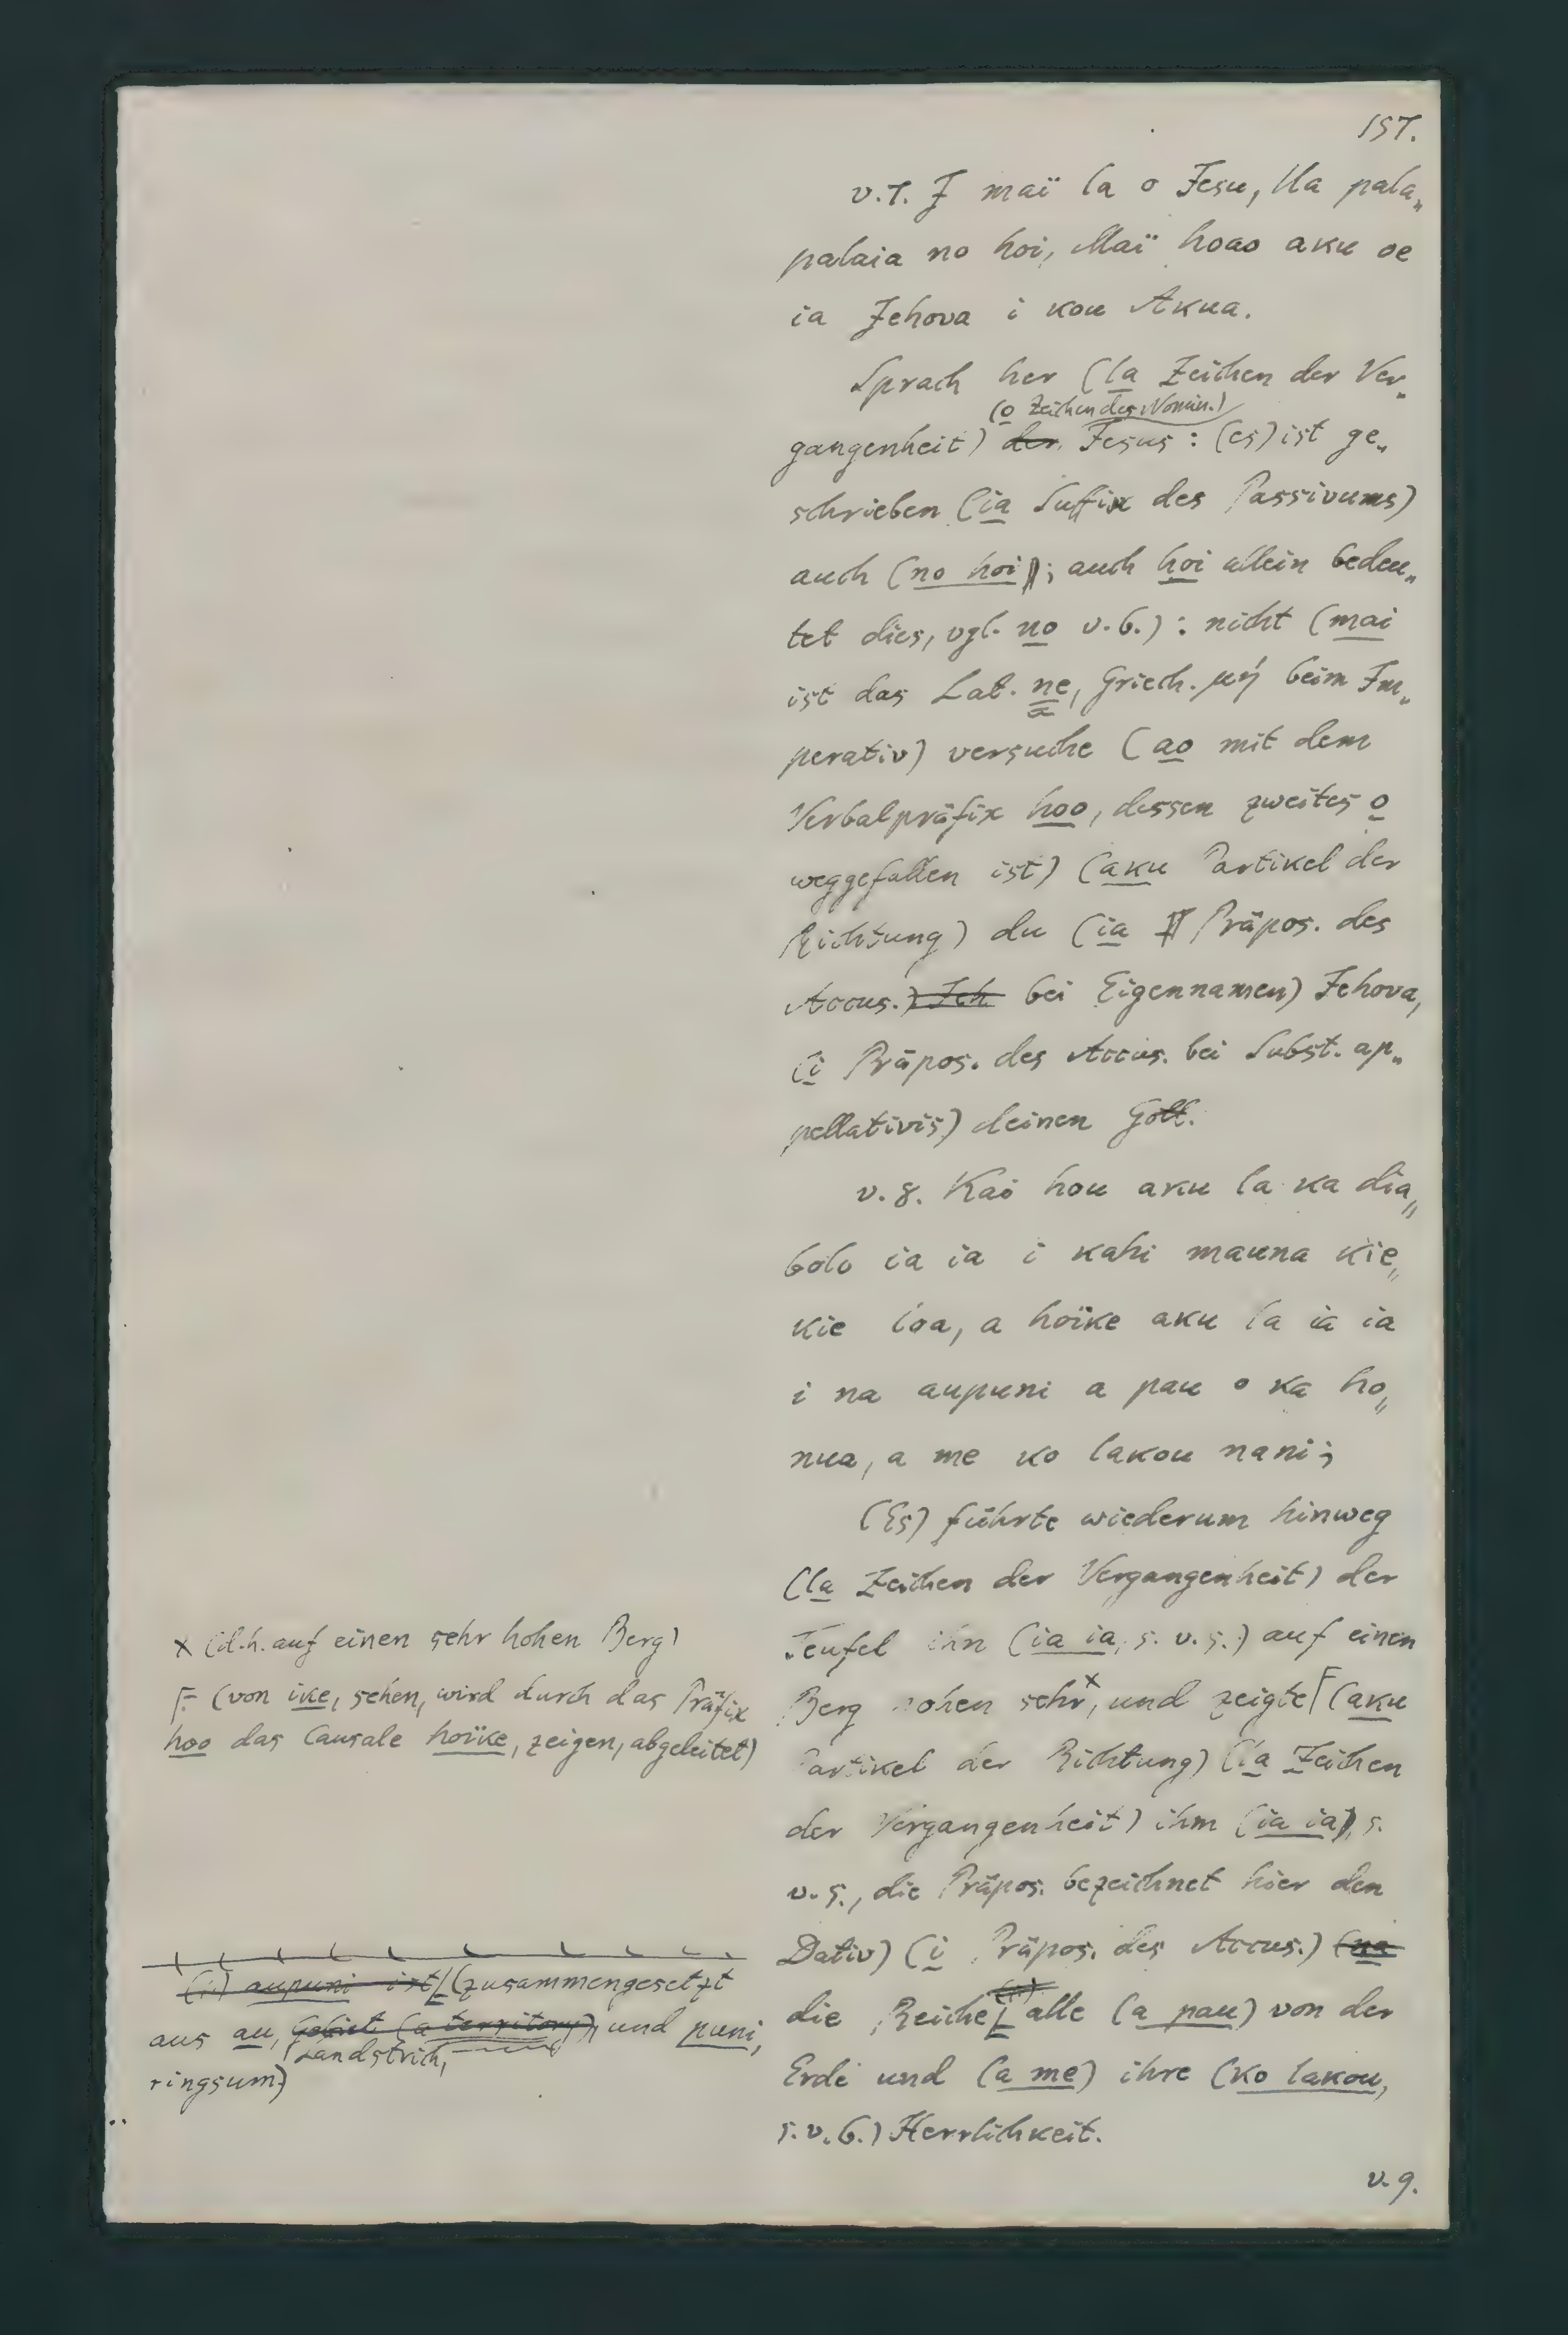 157.
v. 7. I maï la o Jesu, Ua pala„
palaia no hoi, Maï hoao aku oe
ia Jehova i kou Akua.
Sprach her (la Zeichen der Ver„
(o Zeichen des Nomin.)
gangenheit) der Jesus : (es) ist ge„
schrieben (ia Suffix des Passivums)
auch (no hoi); auch hoi allein bedeu„
tet dies, vgl. no v. 6.) : nicht (mai
ist das Lat. ne, Griech. μή beim Im„
perativ) versuche (ao mit dem
Verbalpräfix hoo, dessen zweites o
weggefallen ist) (aku Partikel der
Richtung) du (ia Präpos. des
Accus.) Jeh bei Eigennamen) Jehova,
(i Präpos. des Accus. bei Subst. ap„
pellativis) deinen Gott.
v. 8. Kai hou aku la ka dia„
bolo ia ia i kahi mauna kie„
kie loa, a hoïke aku la ia ia
i na aupuni a pau o ka ho„
nua, a me ko lakou nani;
(Es) führte wiederum hinweg
(la Zeichen der Vergangenheit) der
Teufel ihn (ia ia, s. v. 5.) auf einen
Berg hohen sehr x, und zeigte F (aku
Partikel der Richtung) (la Zeichen
der Vergangenheit) ihm (ia ia), s.
v. 5., die Präpos. bezeichnet hier den
Dativ) (i Präpos. des Accus.) (na
die Reiche alle (a pau) von der
Erde und (a me) ihre (ko lakou,
s. v. 6.) Herrlichkeit.
v. 9.
x (d. h. auf einen sehr hohen Berg)
F (von ike, sehen, wird durch das Präfix
hoo das Causale hoïke, zeigen, abgeleitet)
aupuni ist (zusammengesetzt
aus au, Gebiet (a territory), und puni,
Landstrich,
ringsum)